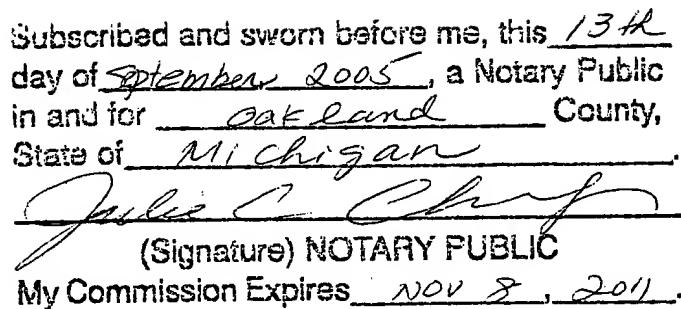 Subscribed and sworn before me, this 13th
day of September, 2005, a Notary Public
in and for Oakland County,
State of Michigan.
Julie C
(Signature) NOTARY PUBLIC
My Commission Expires Nov 8, 2011.